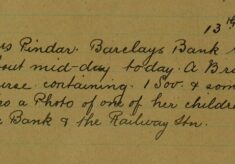 13th
rs Pindar. Barclays Bank
out mid-day today. A Br
urse containing. 1 Sov. & som
so a Photo of one of her children
e Bank & the Railway Stn.